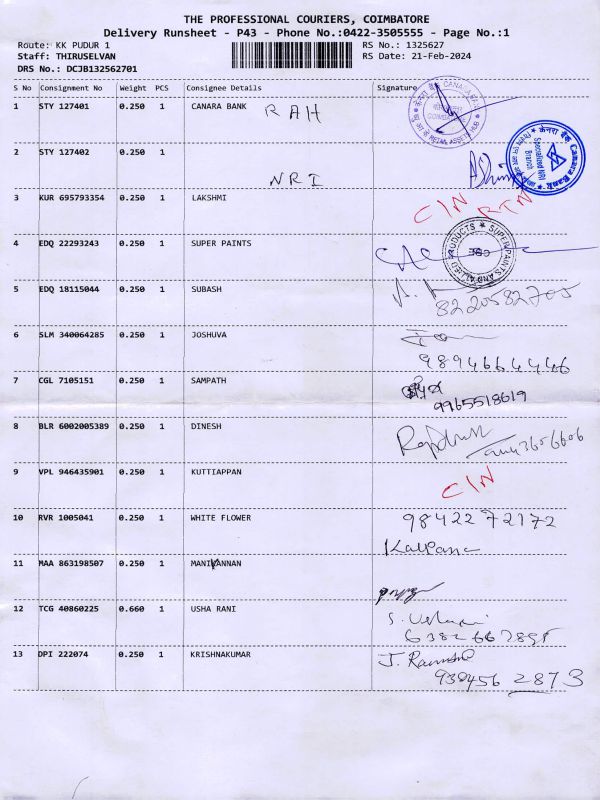 THE PROFESSIONAL COURIERS, COIMBATORE
Delivery Runsheet - P43 - Phone No.:0422-3505555 - Page No.:1
Route: KK PUDUR 1 RS No.: 1325627
Staff: THIRUSELVAN RS Date: 21-Feb-2024
DRS No.: DCJB132562701
S No Consignment No Weight PCS Consignee Details Signature
1 STY 127401 0.250 1 CANARA BANK RAH
CANARA BANK COIMBATORE RETAIL ASSETS HUB
2 STY 127402 0.250 1
NRI
केनरा बैंक Canara Bank Specialised NRI Branch
3 KUR 695793354 0.250 1 LAKSHMI C/N RTN
4 EDQ 22293243 0.250 1 SUPER PAINTS
SUPER PAINTS AND ALLIED PRODUCTS CBE
5 EDQ 18115044 0.250 1 SUBASH
8220582705
6 SLM 340064285 0.250 1 JOSHUVA
9894664446
7 CGL 7105151 0.250 1 SAMPATH
9965518619
8 BLR 6002005389 0.250 1 DINESH
9 VPL 946435901 0.250 1 KUTTIAPPAN C/N
10 RVR 1005041 0.250 1 WHITE FLOWER 9842272172
Kalpana
11 MAA 863198507 0.250 1 MANIVANNAN
12 TCG 40860225 0.660 1 USHA RANI
13 DPI 222074 0.250 1 KRISHNAKUMAR
939456 2873